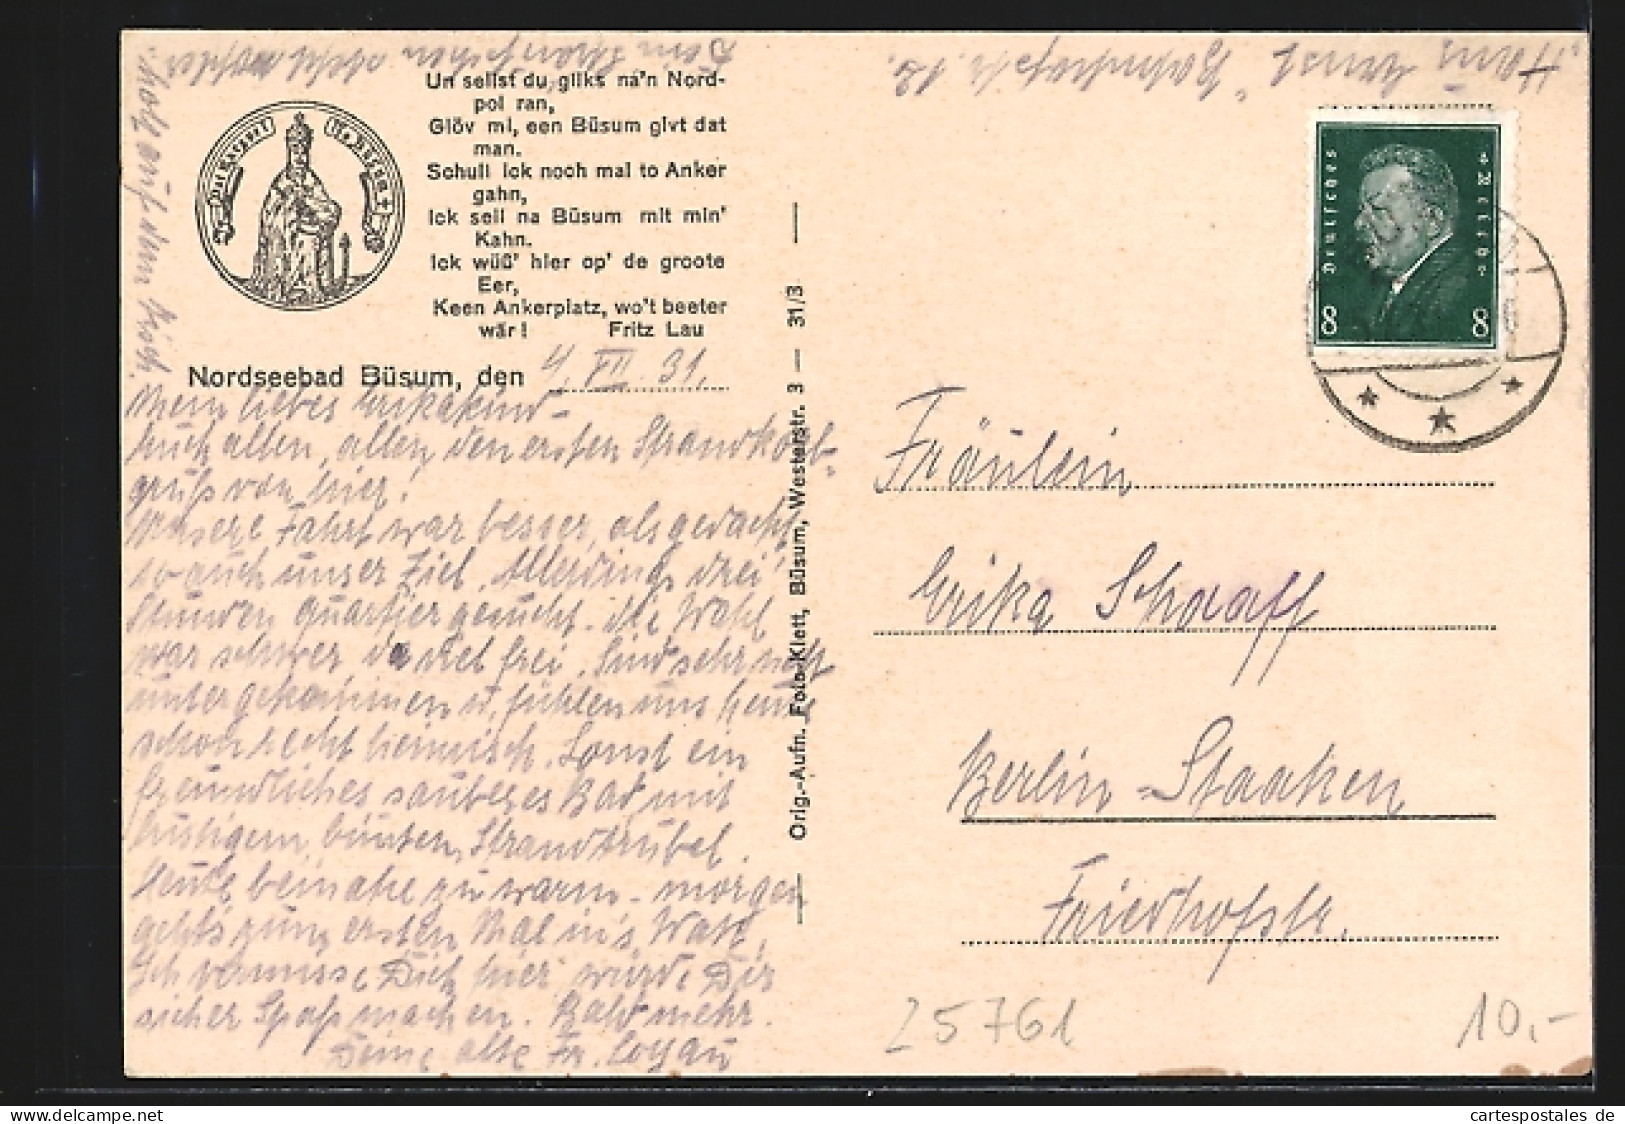 Un sellst du, gliks na'n Nord-
pol ran,
Glöv mi, een Büsum givt dat
man.
Schull ick noch mal to Anker
gahn,
Ick seil na Büsum mit min'
Kahn.
Ick wüß' hier op' de groote
Eer,
Keen Ankerplatz, wo't beeter
wär! Fritz Lau
Nordseebad Büsum, den 4. VII. 31.
Mein liebes Erikakind –
Euch allen, allen den ersten Strandkorb-
gruß von hier!
Unsere Fahrt war besser, als gedacht,
so auch unser Ziel. Allerdings drei
Stunden Quartier gesucht. Die Wahl
war schwer, da viel frei. Sind sehr nett
untergekommen u. fühlen uns heute
schon recht heimisch. Sonst ein
freundliches sauberes Bad mit
lustigem, bunten Strandtrubel.
Heute beinahe zu warm – morgen
geht's zum ersten Mal in's Watt.
Ich vermisse Dich hier, würde Dir
sicher Spaß machen. Bald mehr.
Deine alte Fr.
Orig.-Aufn. Foto-Klett, Büsum, Westerstr. 3 — 31/3
Deutsches Reich
8 8
Fräulein
Erika Schaaff
Berlin-Staaken
Friedhofstr.
25761
10,-
cartespostales de